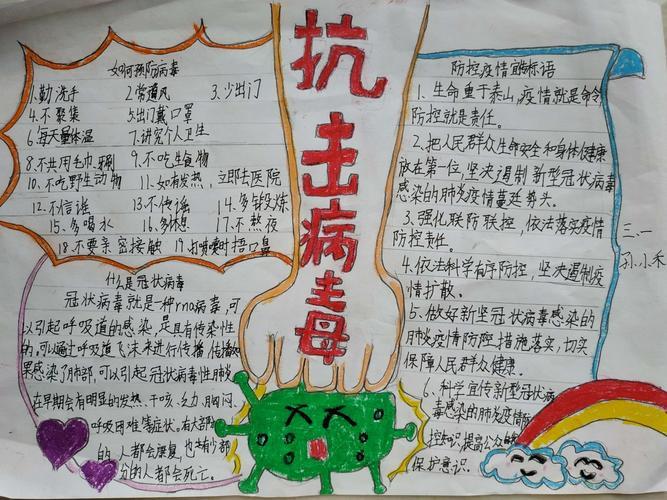 抗击病毒
如何预防病毒
1.勤洗手 2.常通风 3.少出门
4.不聚集 5.出门戴口罩
6.每天量体温 7.讲究个人卫生
8.不共用毛巾,牙刷 9.不吃生食物
10.不吃野生动物 11.如有发热,立即去医院
12.不信谣 13.不传谣 14.多锻炼
15.多喝水 16.多休息 17.不熬夜
18.不要亲密接触 19.打喷嚏时捂口鼻
什么是冠状病毒
冠状病毒就是一种rna病毒,可
以引起呼吸道的感染,是具有传染性
的,可以通过呼吸道飞沫来进行传播,
果感染了肺部,可以引起冠状病毒性肺炎
在早期会有明显的发热、干咳、乏力、胸闷、
呼吸困难等症状。有大部
的人都会康复,也有少部
分的人都会死亡。
防控疫情宣标语
1、生命重于泰山,疫情就是命令
防控就是责任。
2、把人民群众生命安全和身体健康
放在第一位,坚决遏制新型冠状病毒
感染的肺炎疫情蔓延势头。
3、强化联防联控,依法落实疫情
防控责任。
4、依法科学有序防控,坚决遏制疫
情扩散。
5、做好新型冠状病毒感染的
肺炎疫情防控措施落实,切实
保障人民群众健康。
6、科学宣传新型冠状病
毒感染的肺炎疫情防
控知识,提高公众
保护意识。
三、一
孙小禾